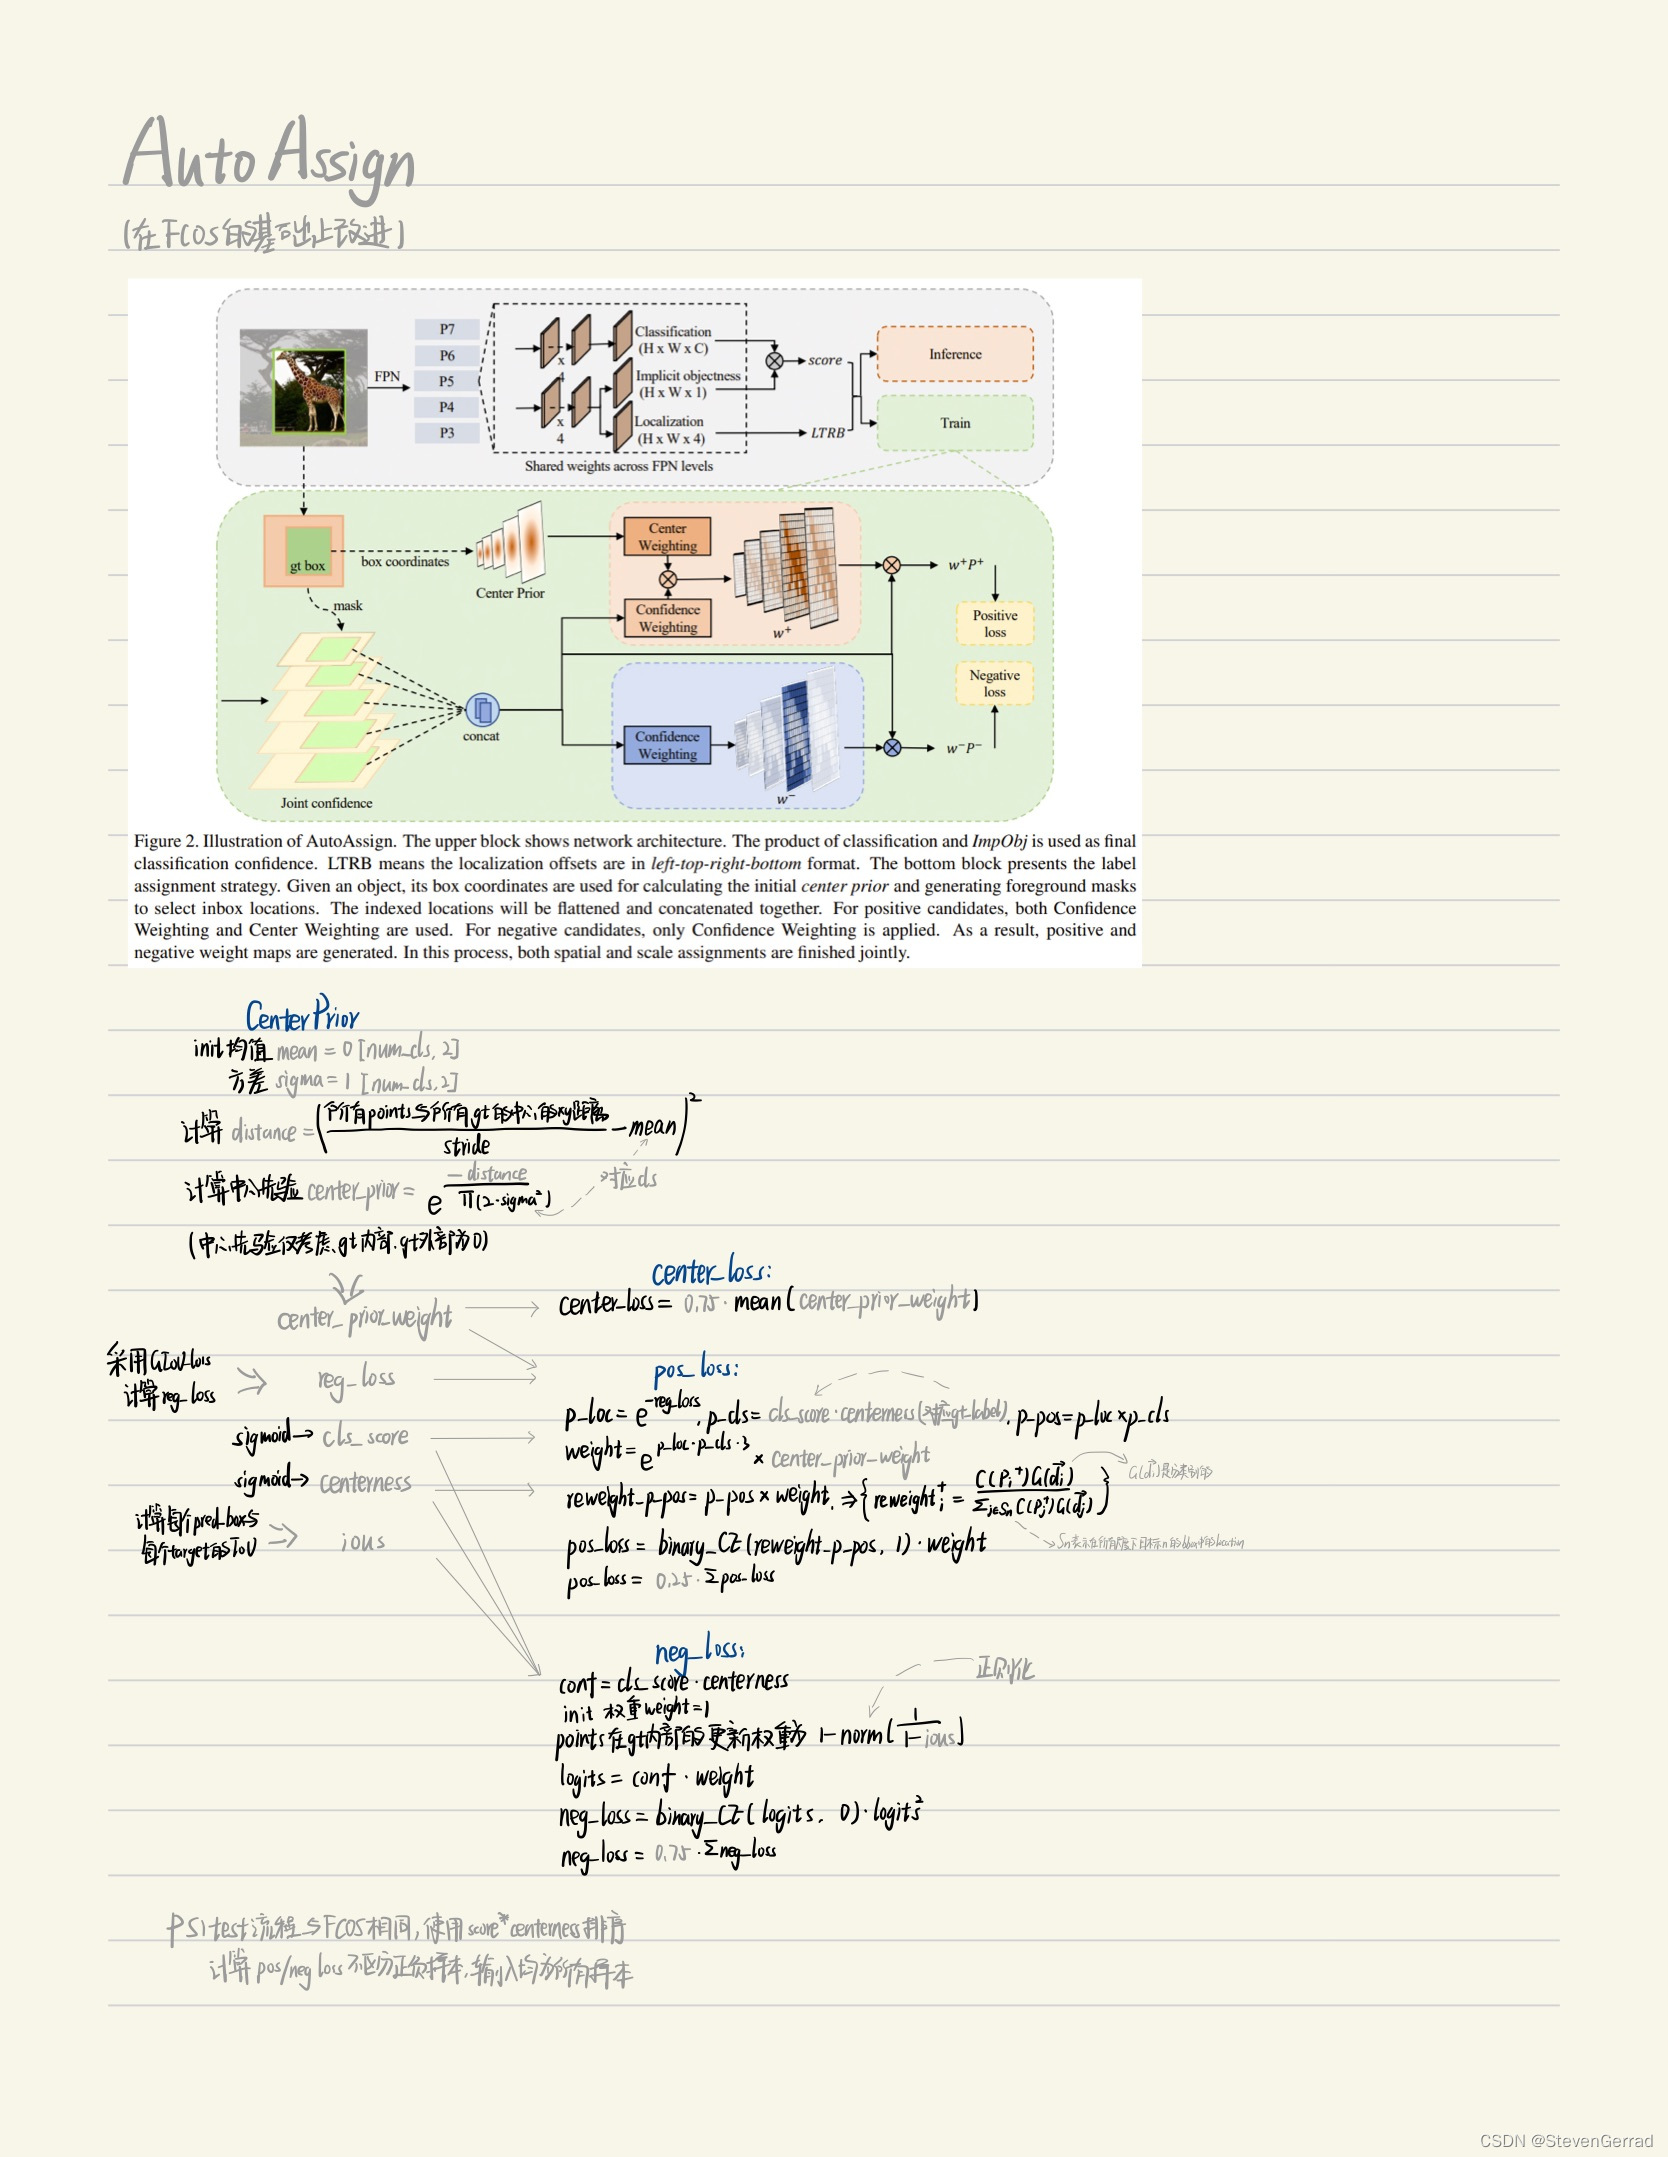 Auto Assign
(在FCOS的基础上改进)
P7
P6
P5
P4
P3
FPN
x 4
x 4
Classification
(H x W x C)
Implicit objectness
(H x W x 1)
Localization
(H x W x 4)
Shared weights across FPN levels
score
LTRB
Inference
Train
gt box
box coordinates
mask
Center Prior
Center Weighting
Confidence Weighting
w⁺
w⁺P⁺
Positive loss
Negative loss
Joint confidence
concat
Confidence Weighting
w⁻
w⁻P⁻
Figure 2. Illustration of AutoAssign. The upper block shows network architecture. The product of classification and ImpObj is used as final
classification confidence. LTRB means the localization offsets are in left-top-right-bottom format. The bottom block presents the label
assignment strategy. Given an object, its box coordinates are used for calculating the initial center prior and generating foreground masks
to select inbox locations. The indexed locations will be flattened and concatenated together. For positive candidates, both Confidence
Weighting and Center Weighting are used. For negative candidates, only Confidence Weighting is applied. As a result, positive and
negative weight maps are generated. In this process, both spatial and scale assignments are finished jointly.
CenterPrior
init均值 mean = 0 [num_cls, 2]
方差 sigma = 1 [num_cls, 2]
计算 distance = (所有points与所有gt的中心的xy距离 / stride - mean)²
计算中心先验 center_prior = e^(-distance / π(2·sigma²))
对应cls
(中心先验仅考虑gt内部,gt外部为0)
center_prior_weight
center_loss:
center_loss = 0.75 · mean(center_prior_weight)
采用GIoULoss
计算reg_loss
reg_loss
sigmoid→ cls_score
sigmoid→ centerness
计算每个pred_box与
每个target的IoU
ious
pos_loss:
p_loc = e^(-reg_loss), p_cls = cls_score·centerness(对应gt_label), p_pos = p_loc × p_cls
weight = e^(p_loc·p_cls·3) × center_prior_weight
reweight_p_pos = p_pos × weight. ⇒ {reweight_i⁺ = C(P_i⁺)G(d_i) / Σ_{j∈Sn} C(P_j⁺)G(d_j)}
G(d_i)是分类别的
Sn表示在所有尺度下目标n的bbox中的location
pos_loss = binary_CE(reweight_p_pos, 1)·weight
pos_loss = 0.25 · Σpos_loss
neg_loss:
conf = cls_score · centerness
init 权重weight = 1
points在gt内部的更新权重为 1-norm(1 / 1-ious)
正则化
logits = conf · weight
neg_loss = binary_CE(logits, 0)·logits²
neg_loss = 0.75 · Σneg_loss
PS: test流程与FCOS相同,使用score*centerness排序
计算pos/neg loss不区分正负样本,输入均为所有样本
CSDN @StevenGerrad